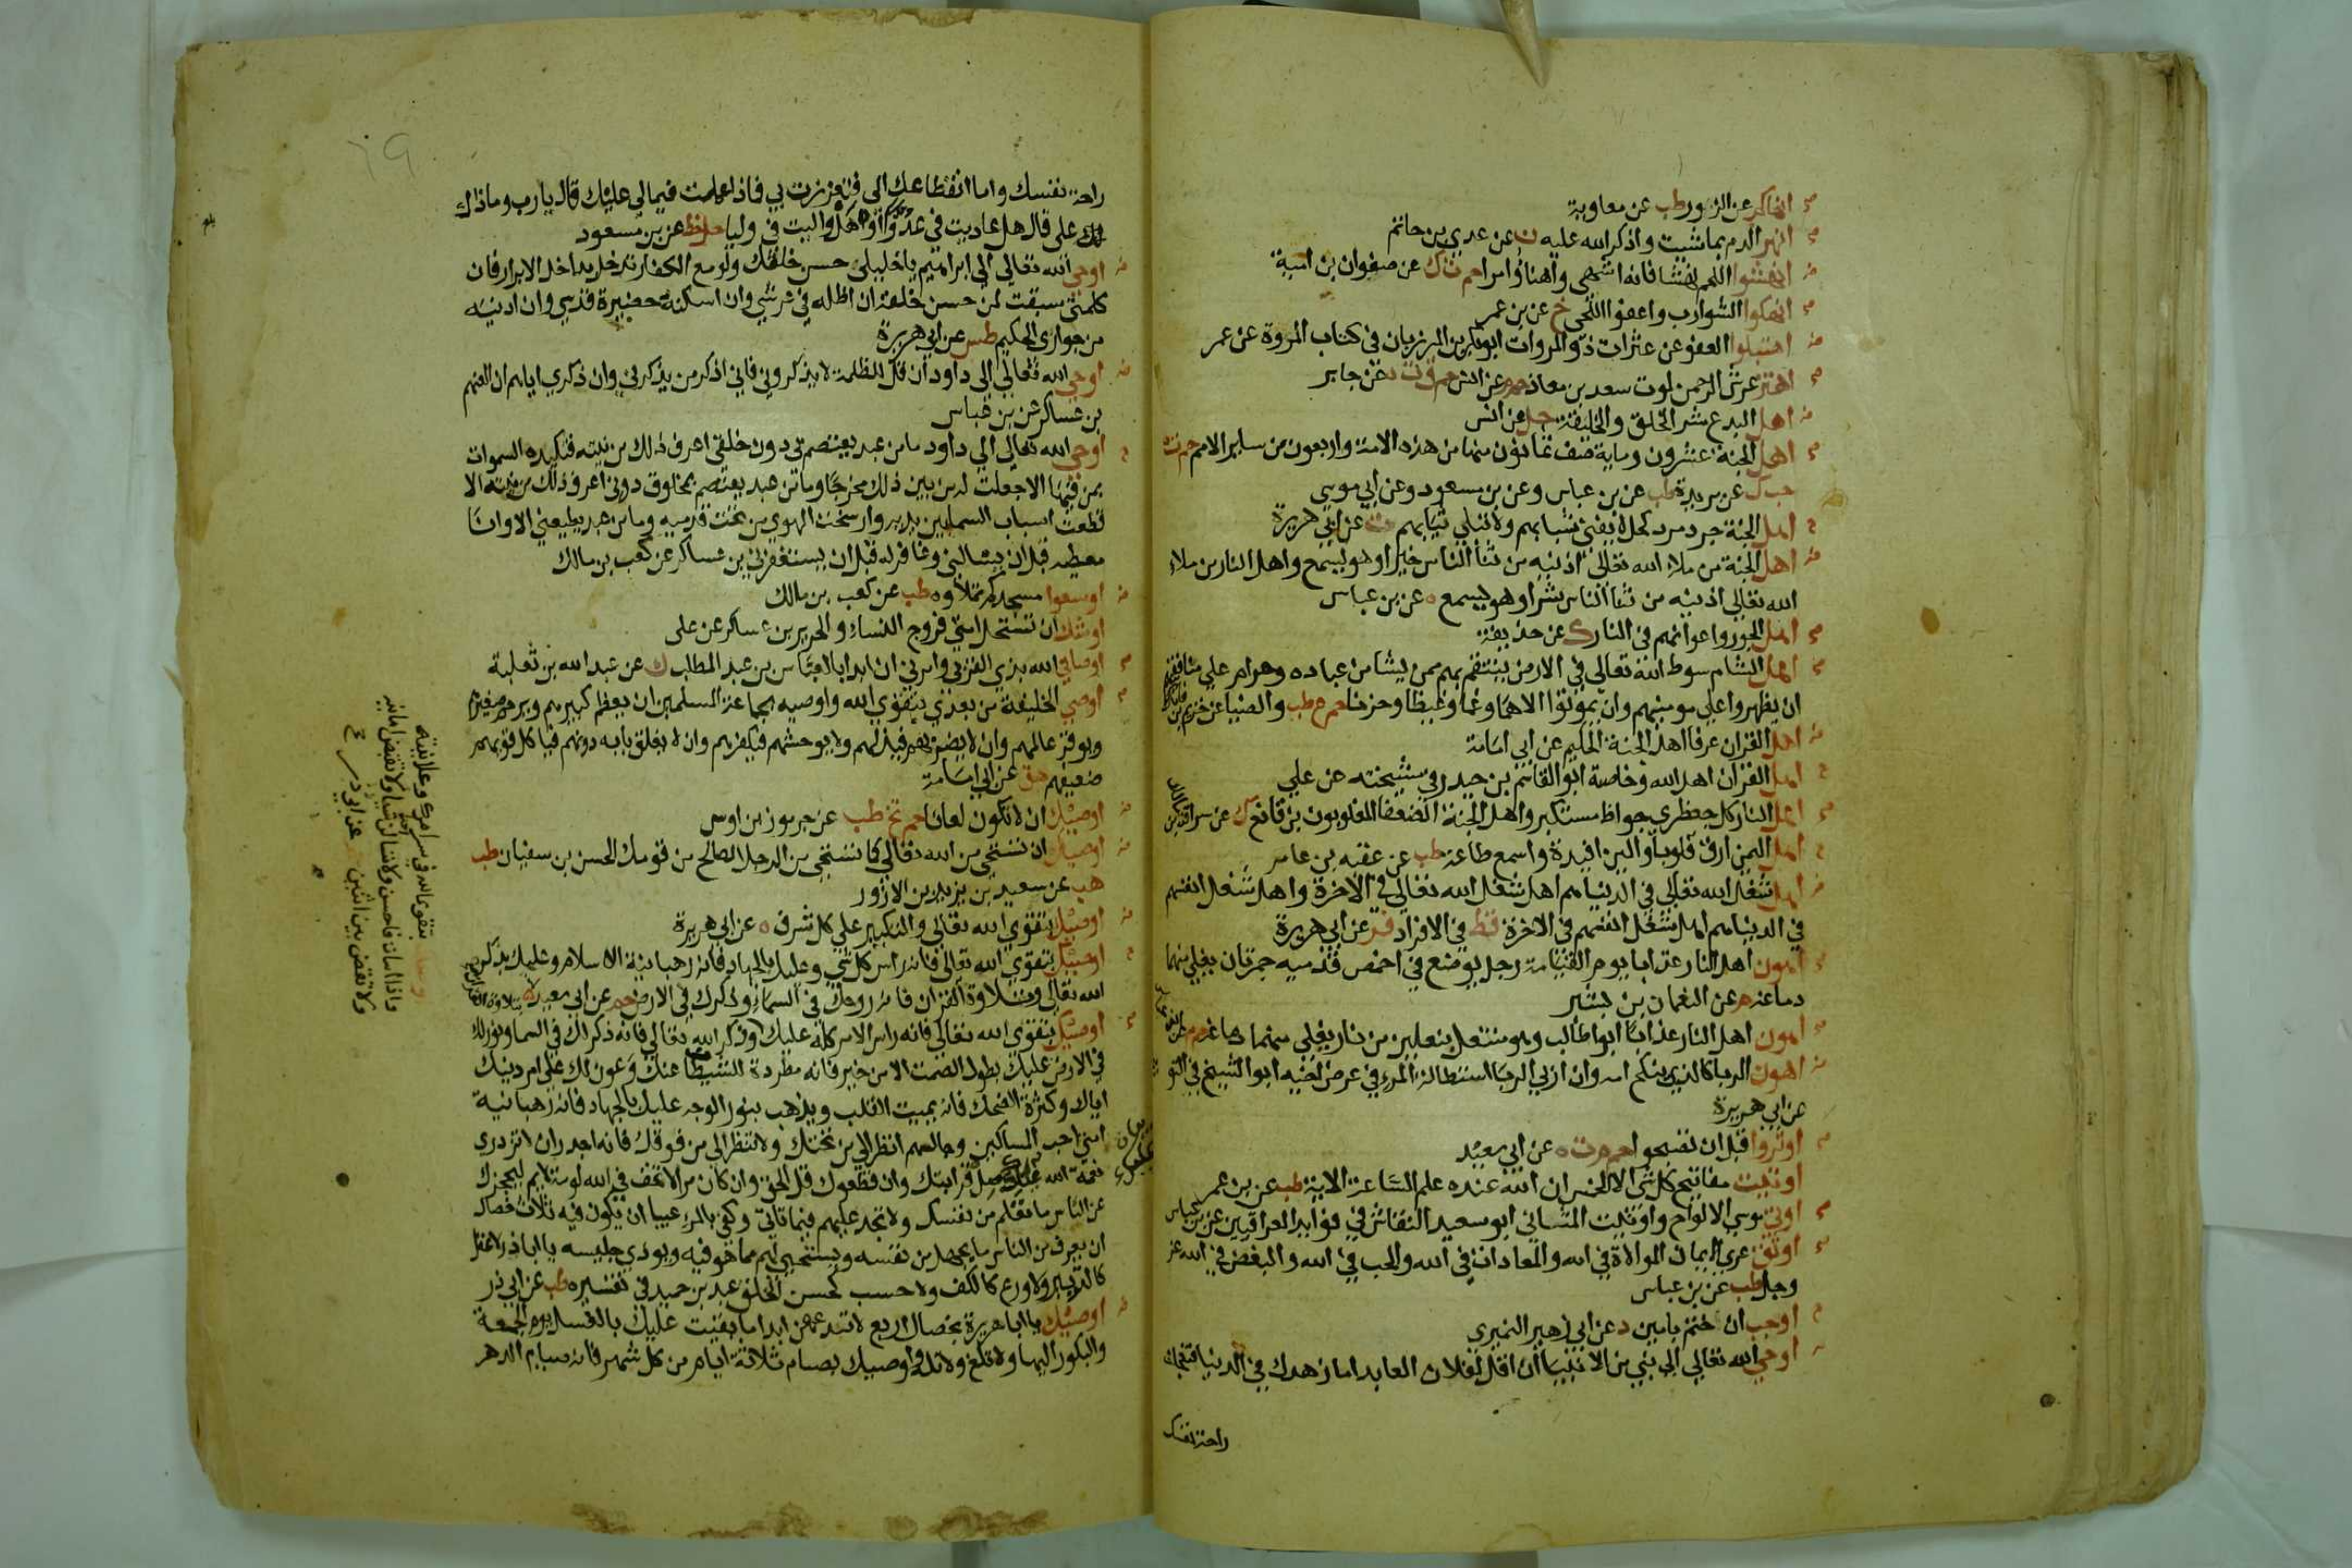 انهاكم عن الزور طب عن معاوية
انهر الدم بما شيت واذكر الله عليه ن عن عدي بن حاتم
انهشوا اللحم نهشا فانه اشهى واهنا وامرا حم ت ك عن صفوان بن امية
انهكوا الشوارب واعفوا اللحى خ عن بن عمر
اهتبلوا العفو عن عثرات ذوى المروات ابوبكر بن المرزبان فى كتاب المروة عن عمر
اهتز عرش الرحمن لموت سعد بن معاذ حم م عن انس حم ق ت ه عن جابر
اهل البدع شر الخلق والخليقة حل عن انس
اهل الجنة عشرون وماية صف ثمانون منها من هذه الامة واربعون من ساير الامم حم ت ه
حب ك عن بريدة طب عن بن عباس وعن بن مسعود وعن ابي موسى
اهل الجنة جرد مرد كحل لا يفنى شبابهم ولا تبلى ثيابهم ت عن ابي هريرة
اهل الجنة من ملاء الله تعالى اذنيه من ثنا الناس خيرا وهو يسمع واهل النار من ملاء
الله تعالى اذنيه من ثنا الناس شرا وهو يسمع ه عن بن عباس
اهل الجور واعوانهم فى النار ك عن حذيفة
اهل الشام سوط الله تعالى في الارض ينتقم بهم ممن يشا من عباده وحرام على منافقيهم
ان يظهروا على مومنيهم وان يموتوا الا هما وغما وغيظا وحزنا حم ع طب والضيا عن خريم بن فاتك
اهل القران عرفا اهل الجنة الحكيم عن ابي امامة
اهل القران اهل الله وخاصته ابو القاسم بن حيدر في مشيخته عن علي
اهل النار كل جعظري جواظ مستكبر واهل الجنة الضعفا المغلوبون بن قانع ك عن سراقة بن مالك
اهل اليمن ارق قلوبا والين افيدة واسمع طاعة طب عن عقبه بن عامر
اهل شغل الله تعالى في الدنيا هم اهل شغل الله تعالى في الاخرة واهل شغل انفسهم
في الدنيا هم اهل شغل انفسهم في الاخرة قط في الافراد فر عن ابي هريرة
اهون اهل النار عذابا يوم القيامة رجل يوضع في اخمص قدميه جمرتان يغلي منهما
دماغه م عن النعمان بن بشير
اهون اهل النار عذابا ابو طالب وهو منتعل بنعلين من نار يغلي منهما دماغه حم م عن بن عباس
اهون الربا كالذي ينكح امه وان اربى الربا استطالة المرء في عرض اخيه ابو الشيخ في التو
عن ابي هريرة
اوتروا قبل ان تصبحوا حم م ت ه عن ابي سعيد
اوتيت مفاتيح كل شى الا الخمس ان الله عنده علم الساعة الاية طب عن بن عمر
اوتي موسى الالواح واوتيت المثاني ابو سعيد النقاش في فوايد العراقيين عن بن عباس
اوثق عرى الايمان الموالاة في الله والمعاداة في الله والحب في الله والبغض في الله عز
وجل طب عن بن عباس
اوجب ان ختم بامين د عن ابي زهير النميري
اوحى الله تعالى الى نبي من الانبيا ان قل لفلان العابد اما زهدك في الدنيا فتعجلت
راحة نفسك
راحة نفسك واما انقطاعك الى فتعززت بي فماذا عملت فيما لي عليك قال يارب وماذا لك
على قال هل عاديت في عدوا او هل واليت في وليا حل خط عن بن مسعود
اوحى الله تعالى الى ابراهيم يا خليلى حسن خلقك ولو مع الكفار تدخل مداخل الابرار فان
كلمتى سبقت لمن حسن خلقه ان اظله في عرشي وان اسكنه حضيرة قدسي وان ادنيه
من جواري الحكيم طس عن ابي هريرة
اوحى الله تعالى الى داود ان قل للظلمة لا يذكروني فاني اذكر من يذكرني وان ذكري اياهم ان العنهم
بن عساكر عن بن عباس
اوحى الله تعالى الى داود ما من عبد يعتصم بي دون خلقى اعرف ذلك من نيته فتكيده السموات
بمن فيها الا جعلت له من بين ذلك مخرجا وما من عبد يعتصم بمخلوق دوني اعرف ذلك من نيته الا
قطعت اسباب السما بين يديه وارسخت الهوي من تحت قدميه وما من عبد يطيعني الا وانا
معطيه قبل ان يسالني وغافر له قبل ان يستغفرني بن عساكر عن كعب بن مالك
اوسعوا مسجدكم تملاوه طب عن كعب بن مالك
اوشك ان تستحل امتى فروج النساء والحرير بن عساكر عن على
اوصاني الله بذي القربى وامرني ان ابدا بالعباس بن عبد المطلب ك عن عبد الله بن ثعلبة
اوصي الخليفة من بعدي بتقوى الله واوصيه بجماعة المسلمين ان يعظم كبيرهم ويرحم صغيرهم
ويوقر عالمهم وان لا يضربهم فيذلهم ولا يوحشهم فيكفرهم وان لا يغلق بابه دونهم فياكل قويهم
ضعيفهم هق عن ابي امامة
اوصيك ان لا تكون لعانا حم تخ طب عن جرموز بن اوس
اوصيك ان تستحي من الله تعالى كما تستحي من الرجل الصالح من قومك الحسن بن سفيان طب
هب عن سعيد بن يزيد بن الازور
اوصيك بتقوى الله تعالى والتكبير على كل شرف ه عن ابي هريرة
اوصيك بتقوى الله تعالى فانه راس كل شي وعليك بالجهاد فانه رهبانية الاسلام وعليك بذكر
الله تعالى وتلاوة القران فانه روحك في السماء وذكرك في الارض حم عن ابي سعيد
اوصيك بتقوى الله تعالى فانه راس الامر كله عليك بتلاوة القران وذكر الله تعالى فانه ذكر لك في السما ونور لك
في الارض عليك بطول الصمت الا من خير فانه مطردة للشيطان عنك وعون لك على امر دينك
اياك وكثرة الضحك فانه يميت القلب ويذهب بنور الوجه عليك بالجهاد فانه رهبانية
امتى احب المساكين وجالسهم انظر الى من تحتك ولا تنظر الى من فوقك فانه اجدر ان لا تزدري
نعمة الله عندك صل قرابتك وان قطعوك قل الحق وان كان مرا لا تخف في الله لومة لايم ليحجزك
عن الناس ما تعلم من نفسك ولا تجد عليهم فيما تاتي وكفى بالمرء عيبا ان يكون فيه ثلاث خصال
ان يعرف من الناس ما يجهل من نفسه ويستحيي لهم مما هو فيه ويوذي جليسه يا ابا ذر لا عقل
كالتدبير ولا ورع كالكف ولا حسب كحسن الخلق عبد بن حميد في تفسيره طب عن ابي ذر
اوصيك يا ابا هريرة بخصال اربع لا تدعهن ابدا ما بقيت عليك بالغسل يوم الجمعة
والبكور اليها ولا تلغ ولا تله واوصيك بصيام ثلاثة ايام من كل شهر فانه صيام الدهر
بتقوى الله فى سر امرك وعلانيته
واذا اسات فاحسن ولا تسالن احدا شيا ولا تقبض امانة
ولا تقض بين اثنين حم عن ابي ذر